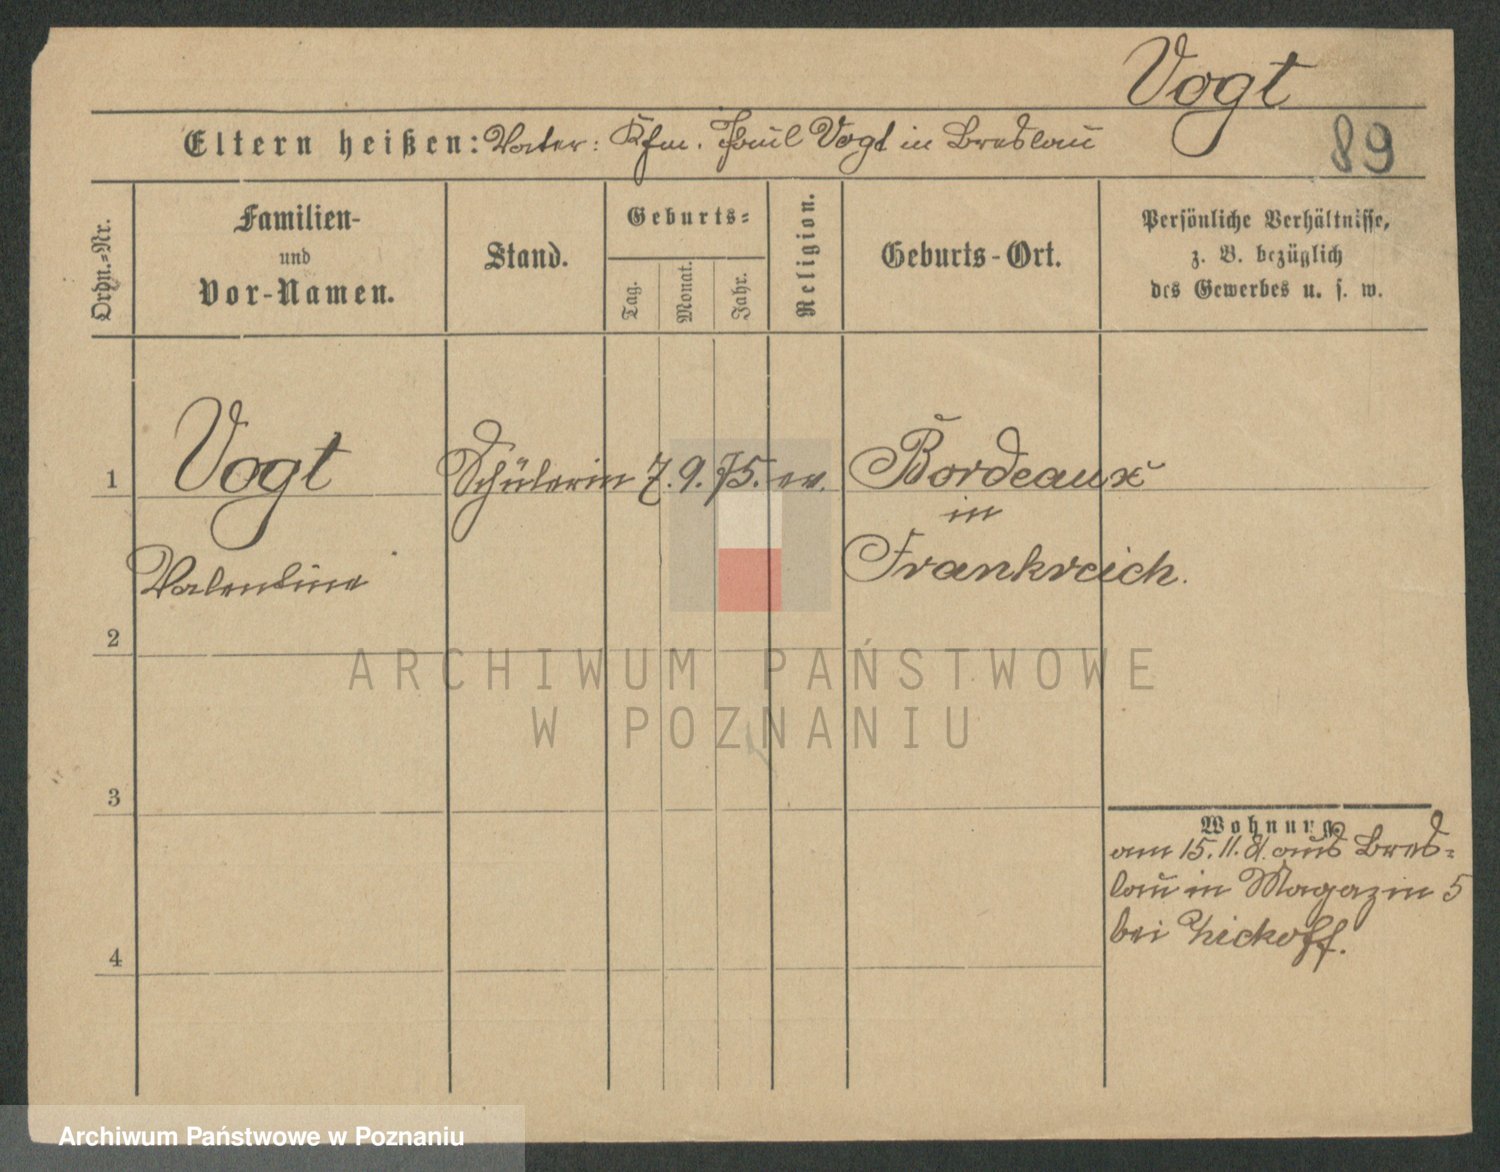 Vogt
89
Eltern heißen: Vater: Kfm. Paul Vogt in Breslau
Ordn.-Nr.
Familien-
und
Vor-Namen.
Stand.
Geburts-
Tag.
Monat.
Jahr.
Religion.
Geburts-Ort.
Persönliche Verhältnisse,
z. B. bezüglich
des Gewerbes u. s. w.
1
Vogt
Schülerin
7.
9.
75.
ev.
Bordeaux
in
Frankreich.
Valentine
2
3
4
Wohnung.
am 15.11. aus Bres-
lau in Magazin 5
bei Zickoff.
ARCHIWUM PAŃSTWOWE
W POZNANIU
Archiwum Państwowe w Poznaniu